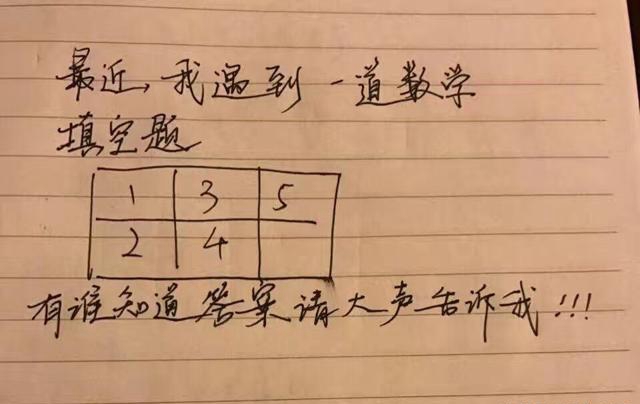 最近,我遇到一道数学
填空题
1 3 5
2 4
有谁知道答案请大声告诉我!!!